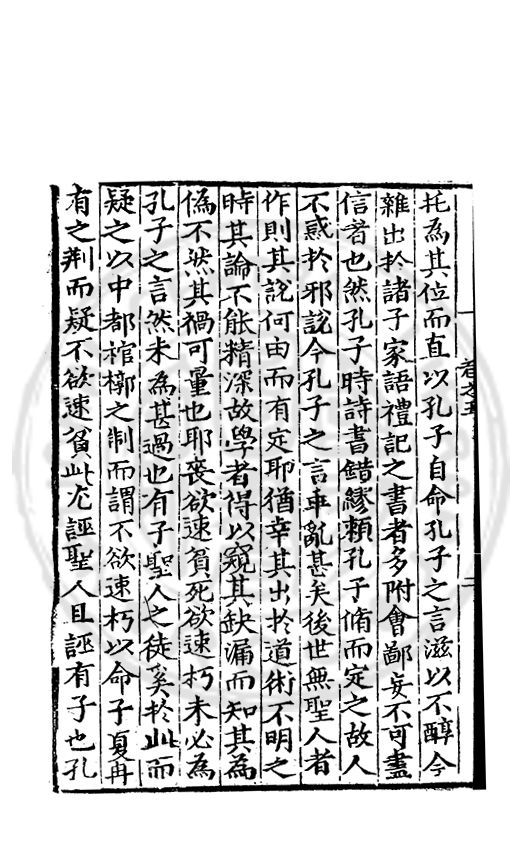 托為其位而直以孔子自命孔子之言滋以不醇今
雜出於諸子家語禮記之書者多附會鄙妄不可盡
信者也然孔子時詩書錯繆賴孔子脩而定之故人
不惑於邪說今孔子之言乖亂甚矣後世無聖人者
作則其說何由而有定耶猶幸其出於道術不明之
時其論不能精深故學者得以窺其缺漏而知其為
偽不然其禍可量也耶喪欲速貧死欲速朽未必為
孔子之言然未為甚過也有子聖人之徒奚於此而
疑之以中都棺槨之制而謂不欲速朽以命子夏冉
有之荆而疑不欲速貧此尤誣聖人且誣有子也孔
卷之五
二